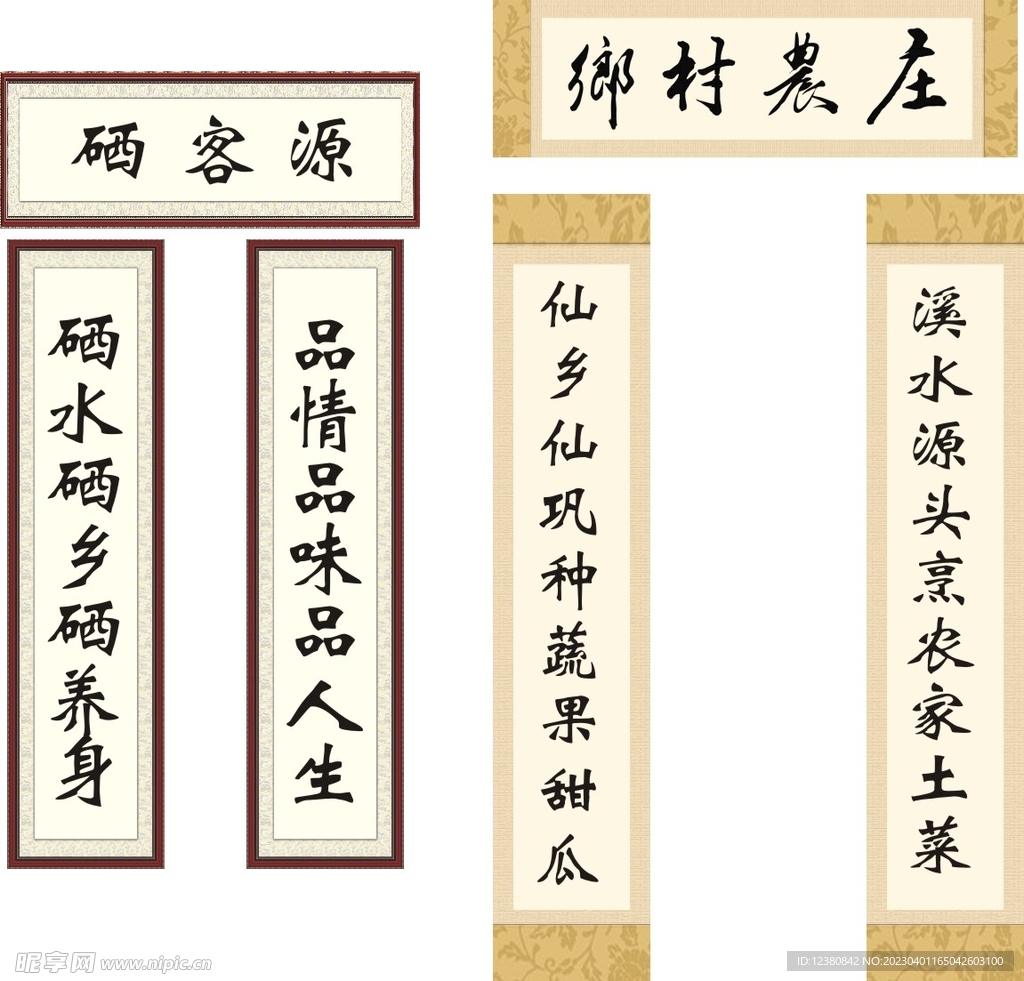 硒客源
硒水硒乡硒养身
品情品味品人生
鄉村農庄
仙乡仙巩种蔬果甜瓜
溪水源头烹农家土菜
昵享网 www.nipic.cn
ID:12380842 NO:20230401165042603100